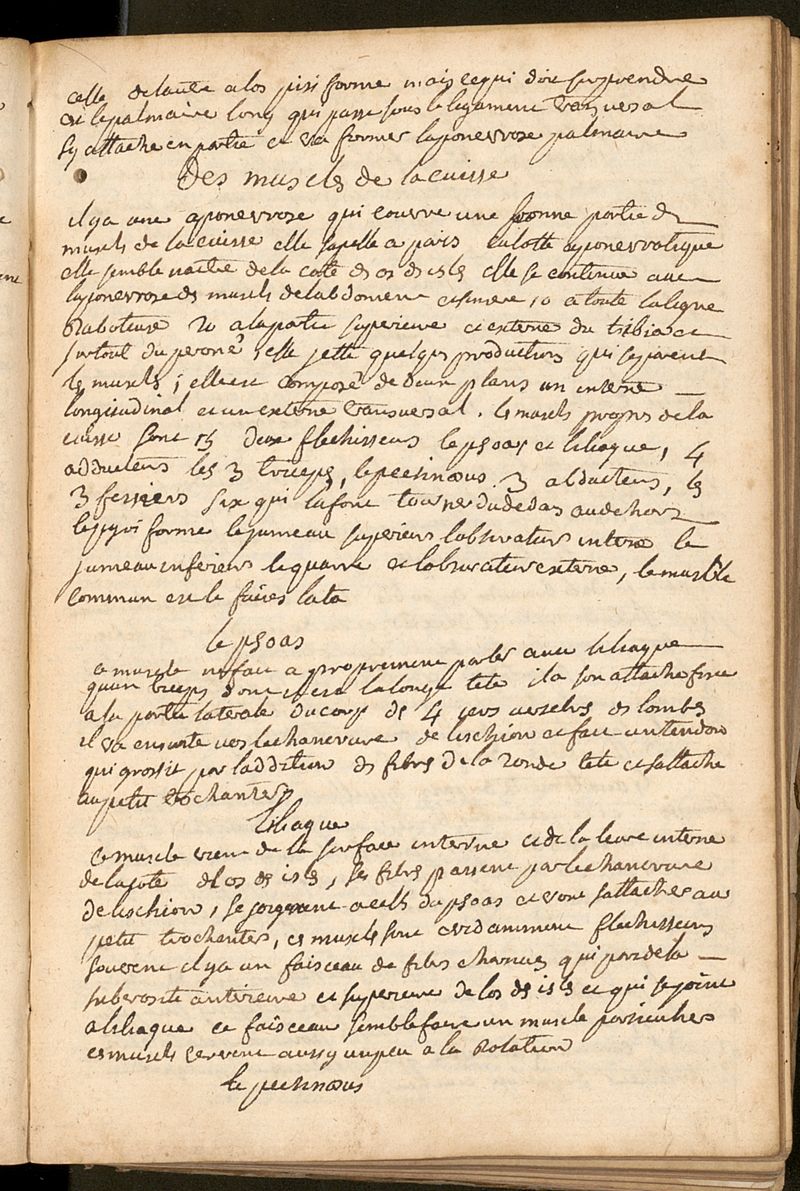 celle de lautre a los pisiforme mais ce qui doit surprendre
est le palmaire long qui passe sous le ligament transversal
sy attache en partie et va former laponevrose palmaire
Des muscles de la cuisse
il ya une aponevrose qui couvre une bonne partie des
muscls de la cuisse elle sapelle a paris calotte aponevrotique
elle semble naitre de la cote des os des isles elle se continue avec
laponevrose des muscls de labdomen et sinsere 10 a toute la ligne
raboteuse 20 a la partie superieure et externe du tibia et
surtout du peroné, elle jette quelques productions qui separent
les muscls ; elle est composé de deux plans un interne
longitudinal et un externe transversal. les muscls propres de la
cuisse sont 15 deux flechisseurs le psoas et liliaque, 4
adducteurs les 3 triceps, le pectinoeus 3 abducteurs, les
3 fessiers six qui la font tourner du dedans au dehors
le pyriforme le jumeau superieur lobturateur interne le
jumeau inferieur le quarré et lobturateur externe, le muscle
commun est le facies lata
le psoas
ce muscle ne fait a proprement parler avec liliaque
quun biceps dont il est la longue tete il a son attache fixe
a la partie laterale du corps des 4 vertebres des lombes
il va ensuite vers lechancrure de lischion et fait un tendon
qui grossit par laddition des fibres de la tete et sattache
au petit trochanter
liliaque
ce muscle vient de la surface interne et de la levre interne
de la cote de los des isles, ses fibres passent par lechancrure
de lischion, se joignent a celles du psoas et vont sattacher au
petit trochanter, ces muscls sont evidamment flechisseurs
souvent il ya un faisceau de fibres charnues qui part de la
tuberosite anterieure et superieure de los des isles et qui se joint
a liliaque ce faisceau semble faire un muscle particulier
ces muscls servent aussy un peu a la rotation
le pectinoeus